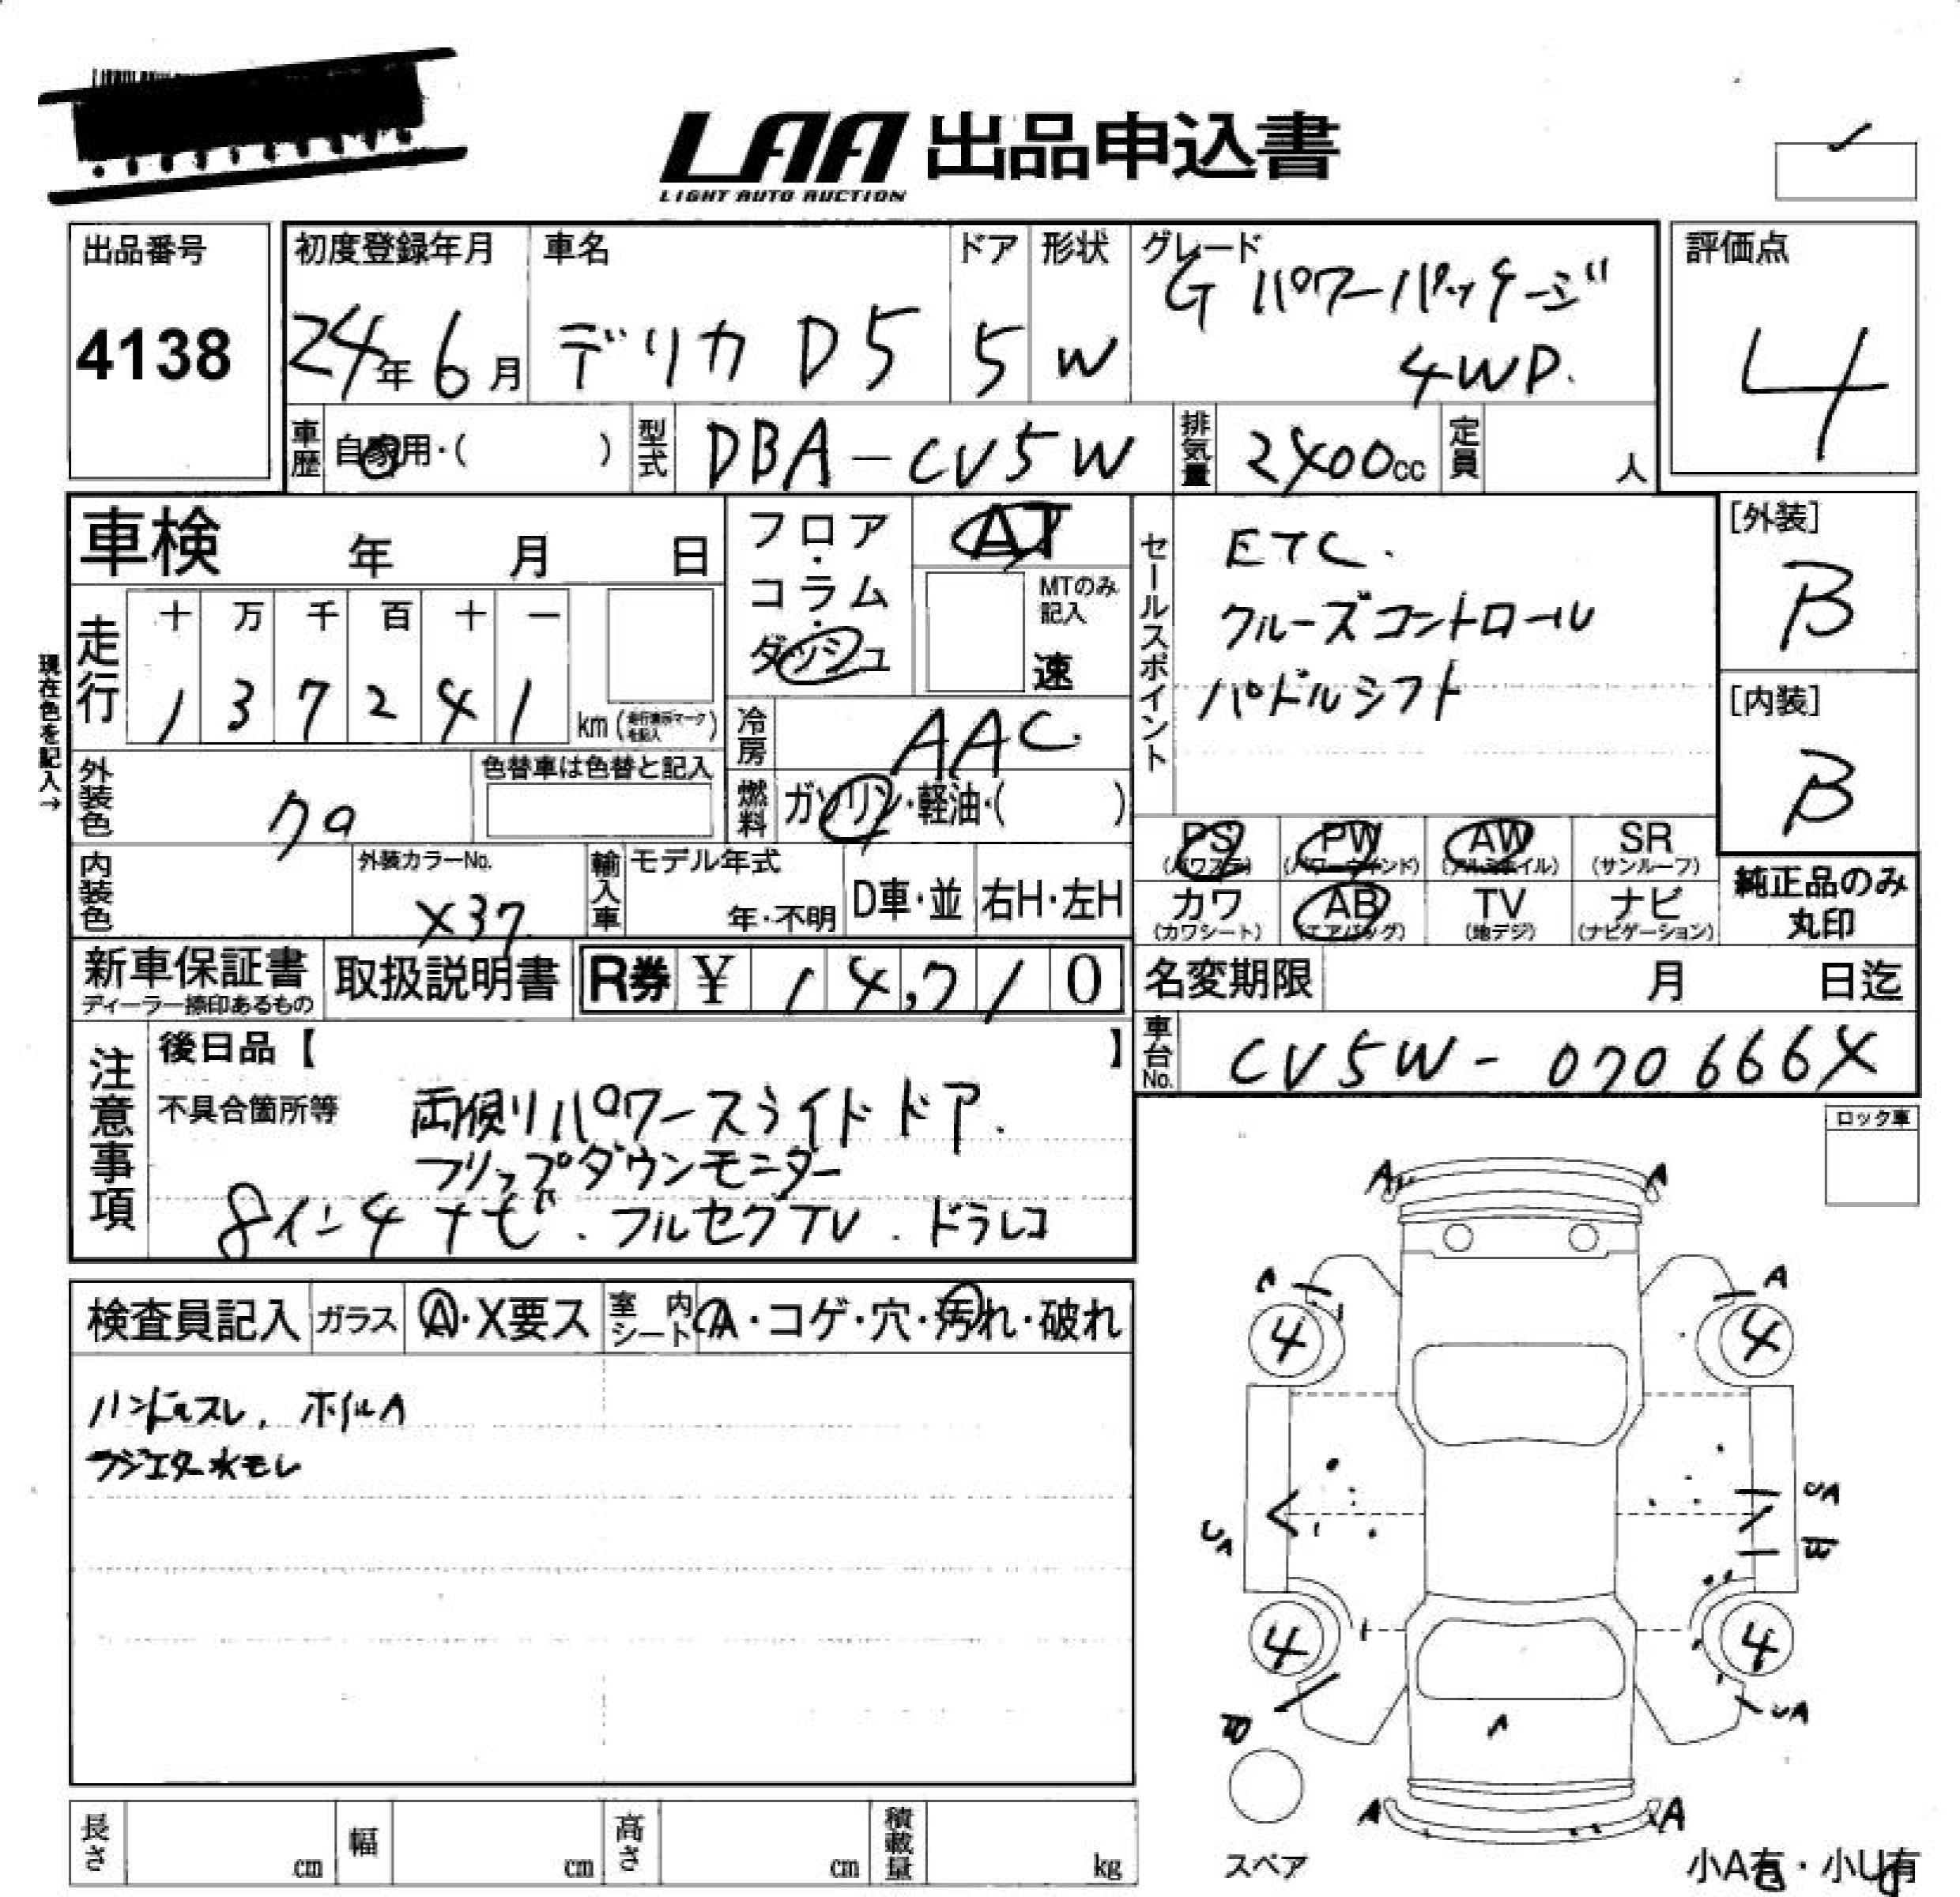 LAA 出品申込書
LIGHT AUTO AUCTION
出品番号
4138
初度登録年月
24年6月
車名
デリカ D5
ドア
5
形状
W
グレード
G パワーパッケージ
4WD.
評価点
4
車歴
自家用・( )
型式
DBA-CV5W
排気量
2400cc
定員
人
車検 年 月 日
フロア・コラム・ダッシュ
AT
MTのみ記入
速
セールスポイント
ETC.
クルーズコントロール
パドルシフト
[外装]
B
[内装]
B
現在色を記入→
走行
十 万 千 百 十 一
1 3 7 2 4 1
km
冷房
AAC
外装色
クロ
色替車は色替と記入
燃料
ガソリン・軽油・( )
PS PW AW SR
(パワステ) (パワーウィンド) (アルミホイル) (サンルーフ)
カワ AB TV ナビ
(カワシート) (エアバッグ) (地デジ) (ナビゲーション)
純正品のみ
丸印
内装色
外装カラーNo.
X37
輸入車
モデル年式
年・不明
D車・並
右H・左H
新車保証書
ディーラー捺印あるもの
取扱説明書
R券 ¥ 14,710
名変期限 月 日迄
車台No.
CV5W-070666X
注意事項
後日品【 】
不具合箇所等
両側パワースライドドア.
フリップダウンモニター
8インチナビ.フルセグTV.ドラレコ
ロック車
検査員記入
ガラス
A・X要ス
室内シート
A・コゲ・穴・汚れ・破れ
ハンドルスレ, ホイルA
ラジエタ水モレ
A A
A A
4 4
UA UA
B
4 4
B UA
A
A A
スペア
長さ cm
幅 cm
高さ cm
積載量 kg
小A有・小U有